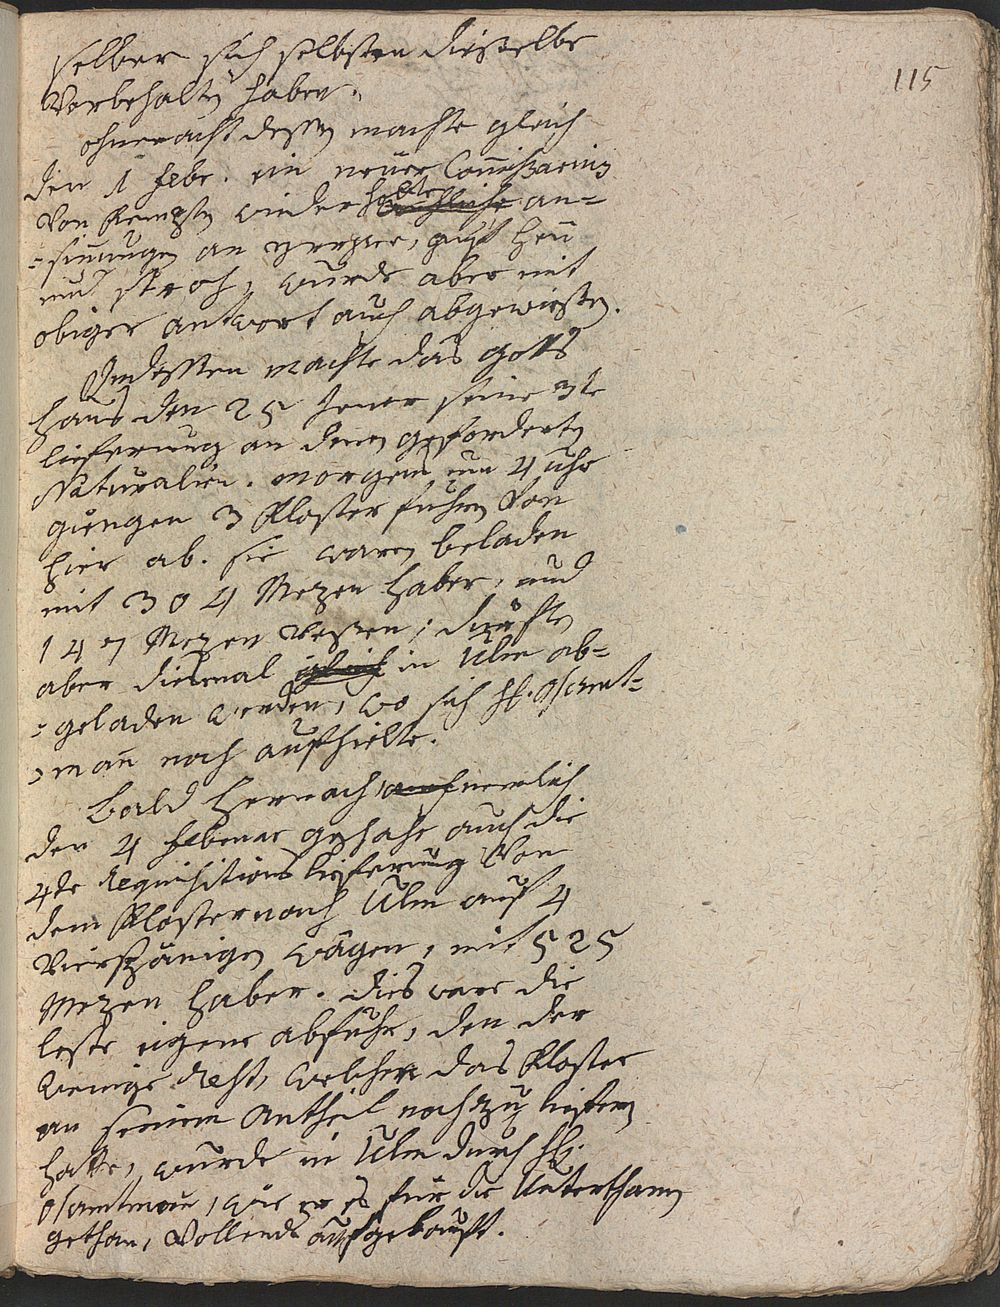 115
selber sich selbsten dieselbe
Vorbehalten haben.
ohneracht dessen machte gleich
den 1 Febr. ein neuer Commissarius
Von Kempten wiederholte an=
=sinnungen an Heu
und Stroh, wurde aber mit
obiger antwort auch abgewiesen.
Indessen machte das Gotts
haus den 25 Jener seine 3te
lieferung an denen geforderten
Naturalien. morgens um 4 uhr
giengen 3 Kloster fuhren Von
hier ab. sie waren beladen
mit 304 Mezen haber, und
147 Mezen Vesen; durften
aber diesmal gleich in Ulm ab=
=geladen werden, wo sich H. Oberamt=
=mann noch aufhielte.
bald hernach, nemlich
den 4 Febener geschahe auch die
4te Requisitions Lieferung Von
dem Kloster nach Ulm auf 4
Vierspänigen wägen, mit 525
Mezen haber. dies ware die
leste eigene abfuhr, den der
wenige Rest, welchen das Kloster
an seinem Antheil noch zu liefern
hatte, wurde in Ulm durch H.
Oberamtman, wie er es für die Unterthanen
gethan, Vollends aufgekauft.